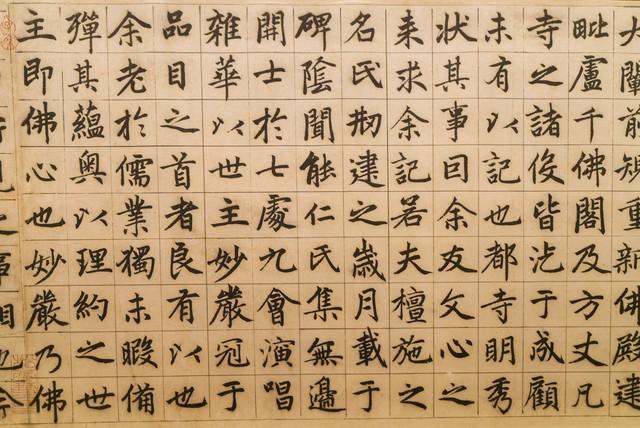 大闡前規重新佛殿建
毗盧千佛閣及方丈凡
寺之諸役皆汔于成顧
未有以記也都寺明秀
狀其事囙余友文心之
来求余記若夫檀施之
名氏刱建之歲月載于
碑陰聞能仁氏集無邊
開士於七處九會演唱
雜華以世主妙嚴冠于
品目之首者良有以也
余老於儒業獨未暇備
殫其蘊奧以理約之世
主即佛心也妙嚴乃佛